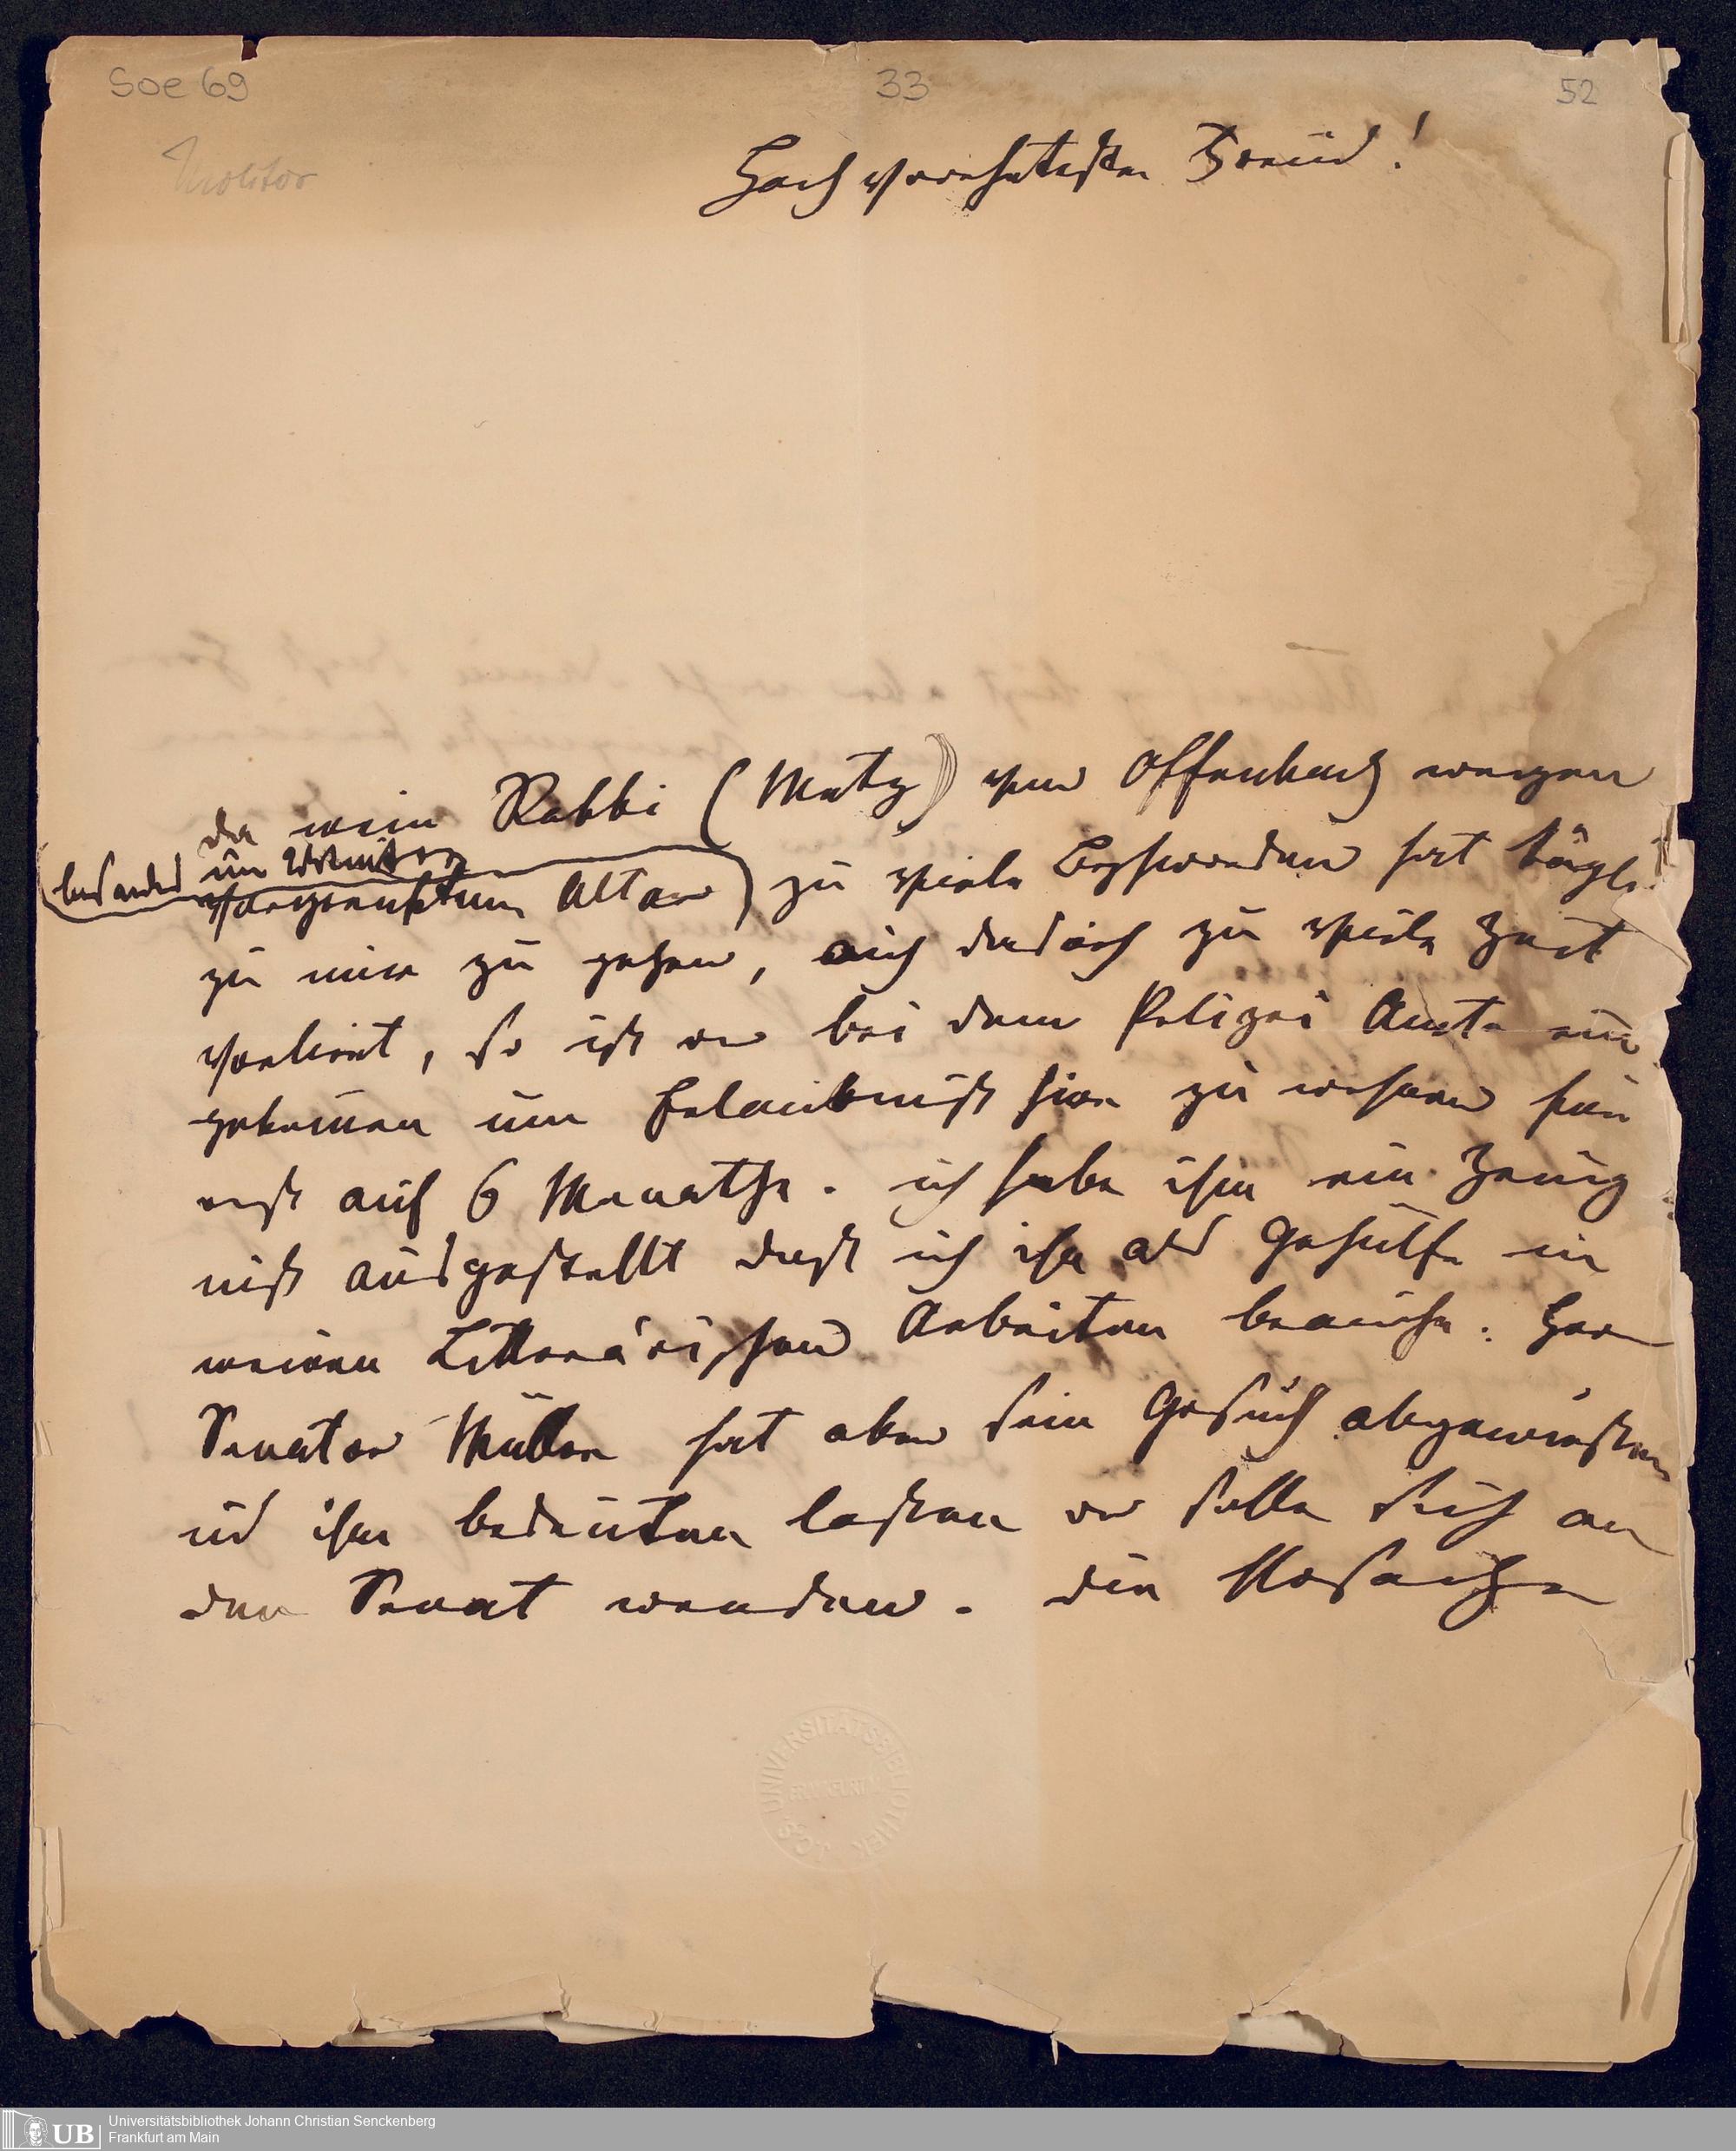 Soe 69
33
52
Molitor
Hoch verehrtester Freund!
Da mein Rabbi (Metz) von Offenbach wegen
(besonders im Winter)
vorgerücktem Alter zu viele Beschwerden hat tägl.
zu mir zu gehen, auch dadurch zu viele Zeit
verliert, so ist er bei dem Polizei Amte ein
gekomen um Erlaubniß hier zu wohnen fürs
erst auf 6 Monathe. ich habe ihm ein Zeug
niß ausgestellt daß ich ihn als Gehülfe in
meinen Litterärischen Arbeiten brauche. Herr
Senator Müller hat aber sein Gesuch abgewiesen
und ihm bedeuten lassen er solle sich an
den Senat wenden. die
UNIVERSITÄTSBIBLIOTHEK
FRANKFURT
UB
Universitätsbibliothek Johann Christian Senckenberg
Frankfurt am Main